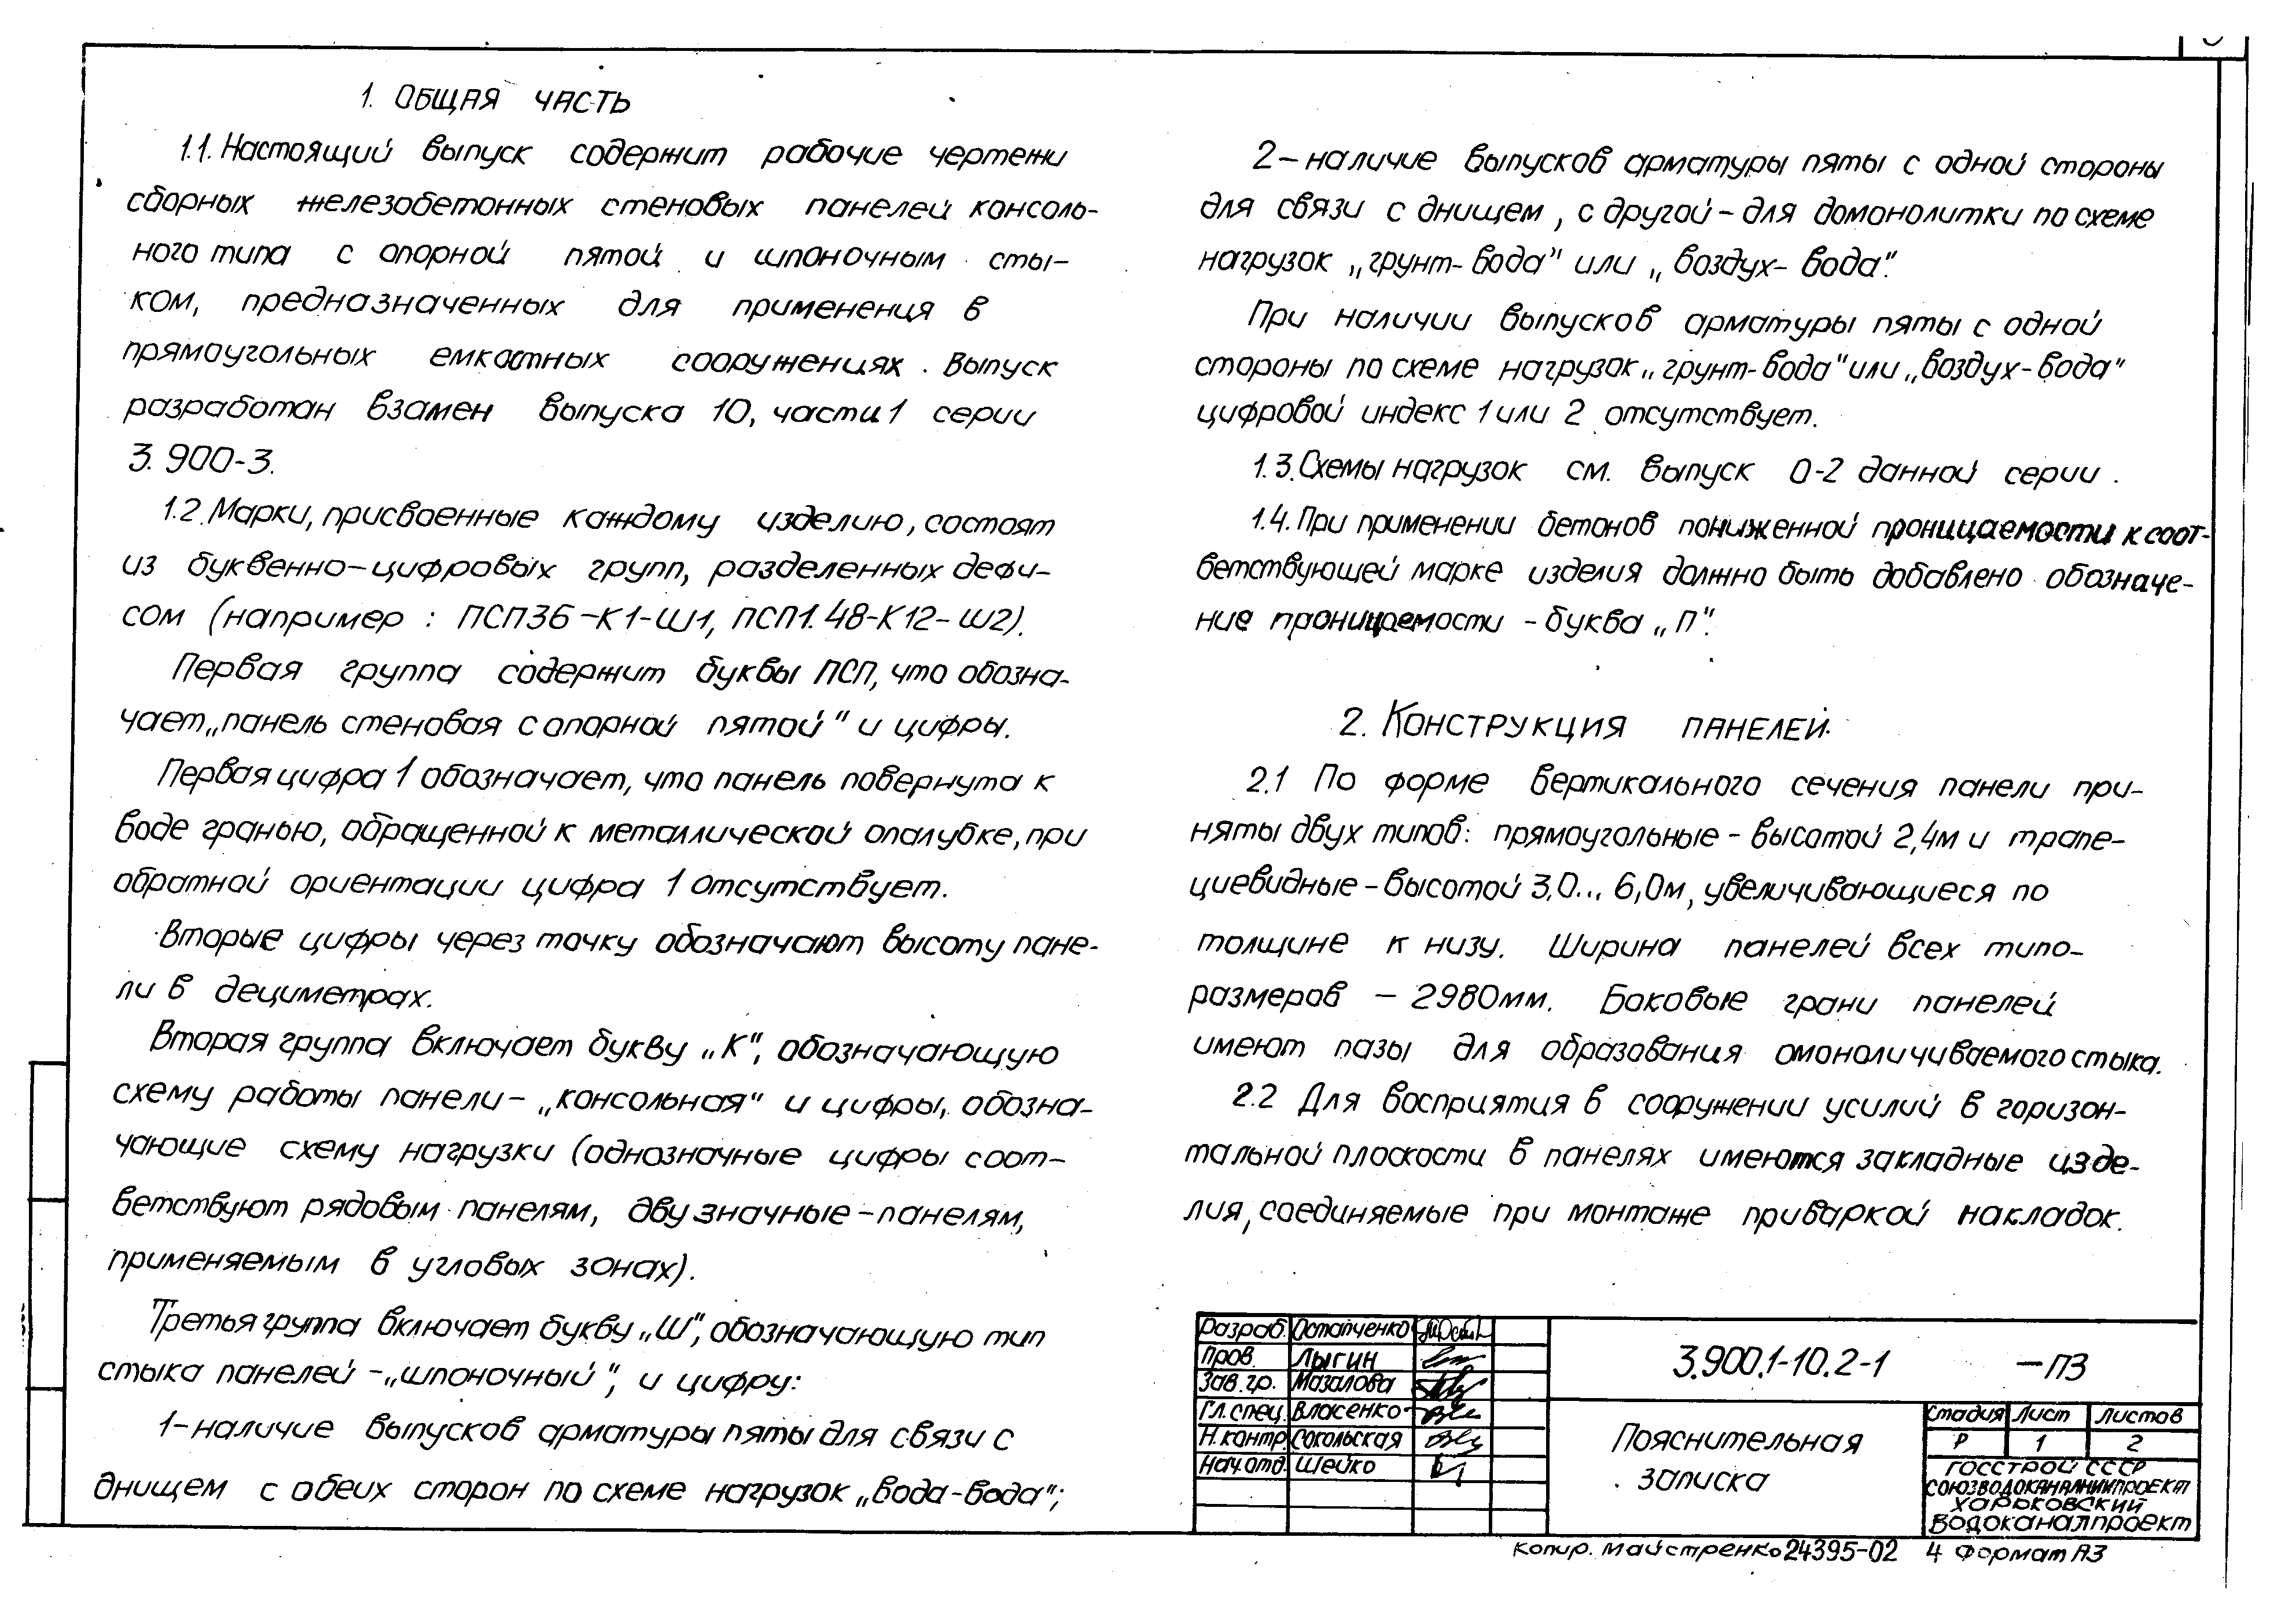 1. ОБЩАЯ ЧАСТЬ
1.1. Настоящий выпуск содержит рабочие чертежи
сборных железобетонных стеновых панелей консоль-
ного типа с опорной пятой и шпоночным сты-
ком, предназначенных для применения в
прямоугольных емкостных сооружениях. Выпуск
разработан взамен выпуска 10, части 1 серии
3.900-3.
1.2. Марки, присвоенные каждому изделию, состоят
из буквенно-цифровых групп, разделенных дефи-
сом (например: ПСП36-К1-Ш1, ПСП1.48-К12-Ш2).
Первая группа содержит буквы ПСП, что обозна-
чает „панель стеновая с опорной пятой" и цифры.
Первая цифра 1 обозначает, что панель повернута к
воде гранью, обращенной к металлической опалубке, при
обратной ориентации цифра 1 отсутствует.
Вторые цифры через точку обозначают высоту пане-
ли в дециметрах.
Вторая группа включает букву „К", обозначающую
схему работы панели - „консольная" и цифры, обозна-
чающие схему нагрузки (однозначные цифры соот-
ветствуют рядовым панелям, двузначные - панелям,
применяемым в угловых зонах).
Третья группа включает букву „Ш", обозначающую тип
стыка панелей - „шпоночный", и цифру:
1 - наличие выпусков арматуры пяты для связи с
днищем с обеих сторон по схеме нагрузок „вода-вода";
2 - наличие выпусков арматуры пяты с одной стороны
для связи с днищем, с другой - для домонолитки по схеме
нагрузок „грунт-вода" или „воздух-вода".
При наличии выпусков арматуры пяты с одной
стороны по схеме нагрузок „грунт-вода" или „воздух-вода"
цифровой индекс 1 или 2 отсутствует.
1.3. Схемы нагрузок см. выпуск 0-2 данной серии.
1.4. При применении бетонов пониженной проницаемости к соот-
ветствующей марке изделия должно быть добавлено обозначе-
ние проницаемости - буква „П".
2. КОНСТРУКЦИЯ ПАНЕЛЕЙ.
2.1 По форме вертикального сечения панели при-
няты двух типов: прямоугольные - высотой 2,4м и трапе-
циевидные - высотой 3,0... 6,0м, увеличивающиеся по
толщине к низу. Ширина панелей всех типо-
размеров - 2980мм. Боковые грани панелей
имеют пазы для образования омоноличиваемого стыка.
2.2 Для восприятия в сооружении усилий в горизон-
тальной плоскости в панелях имеются закладные изде-
лия, соединяемые при монтаже приваркой накладок.
Разраб. Остапченко
Пров. Лыгин
Зав. гр. Мазалова
Гл. спец. Власенко
Н. контр. Сокольская
Нач. отд. Шейко
3.900.1-10.2-1 -ПЗ
Пояснительная
записка
Стадия Лист Листов
Р 1 2
ГОССТРОЙ СССР
СОЮЗВОДОКАНАЛНИИПРОЕКТ
ХАРЬКОВСКИЙ
ВОДОКАНАЛПРОЕКТ
Копир. Майстренко 24395-02 4 Формат А3